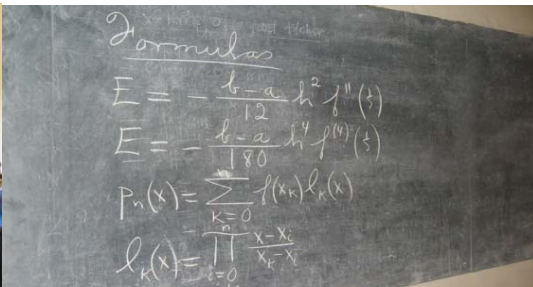 Formulas
E = - \frac{b-a}{12} h² f''(ξ)
E = - \frac{b-a}{180} h⁴ f⁽⁴⁾(ξ)
Pₙ(x) = \sum_{K=0}^{n} f(x_K) l_K(x)
l_K(x) = \prod_{i=0}^{n} \frac{x-x_i}{x_K-x_i}